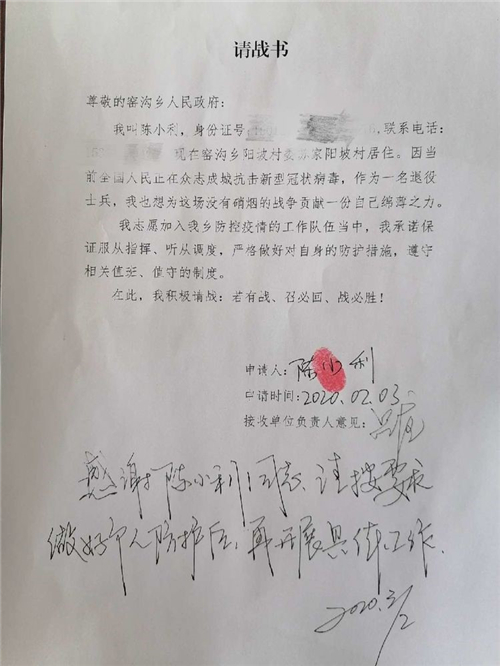 请战书
尊敬的窑沟乡人民政府：
我叫陈小利，身份证号，联系电话：
现在窑沟乡阳坡村委苏家阳坡村居住。因当
前全国人民正在众志成城抗击新型冠状病毒，作为一名退役
士兵，我也想为这场没有硝烟的战争贡献一份自己绵薄之力。
我志愿加入我乡防控疫情的工作队伍当中，我承诺保
证服从指挥、听从调度，严格做好对自身的防护措施，遵守
相关值班、值守的制度。
在此，我积极请战：若有战、召必回、战必胜！
申请人：陈小利
申请时间：2020.02.03
接收单位负责人意见：
感谢陈小利同志，请按要求
做好个人防护后，再开展具体工作.
2020.3/2